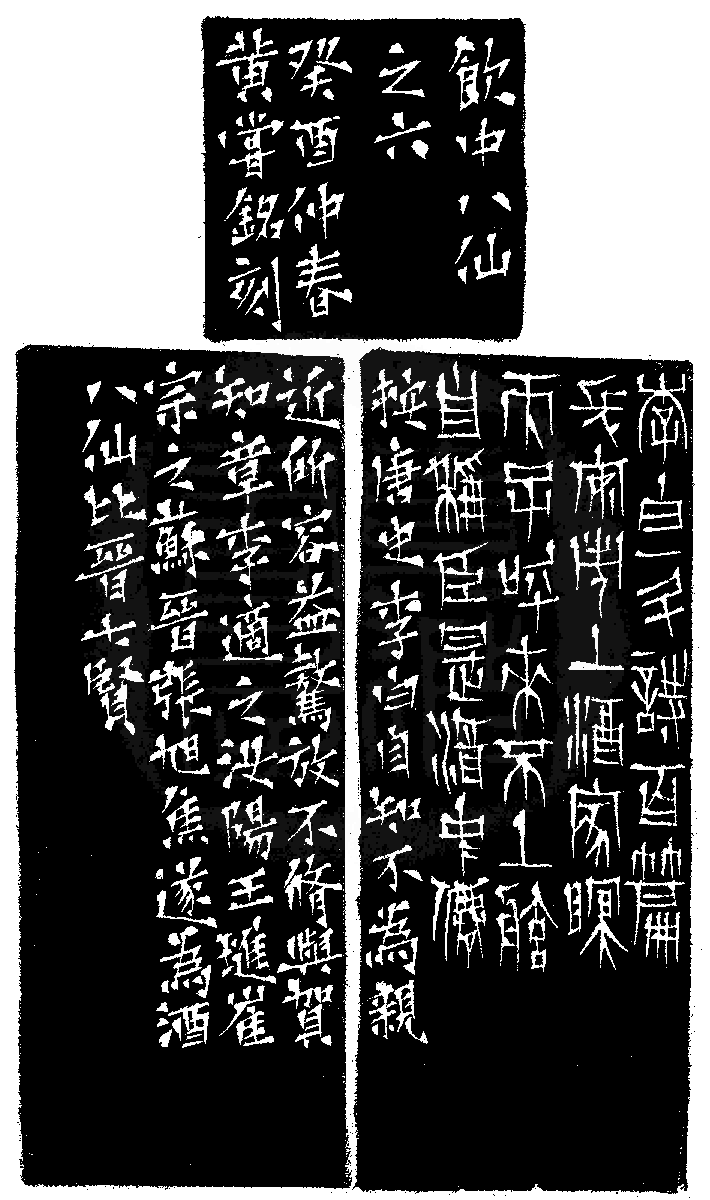 飲中八仙
之六
癸酉仲春
黃嘗銘刻
李白一斗詩百篇
長安市上酒家眠
天子呼來不上船
自稱臣是酒中僊
按唐史李白自知不為親
近所容益驁放不脩與賀
知章李適之汝陽王璡崔
宗之蘇晉張旭焦遂為酒
八仙比晉七賢